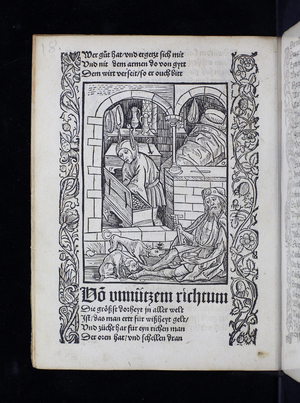 Wer gůt hat/vnd ergetzt sich mit
Vnd nit dem armen do von gytt
Dem wirt verseit/so er ouch bitt
Võ vnnützem richtum
Die gröſzt dorheyt jn aller welt
Iſt/das man ertt für wiſzheyt gelt/
Vnd zücht har für eyn richen man
Der oren hat/vnd ſchellen dran